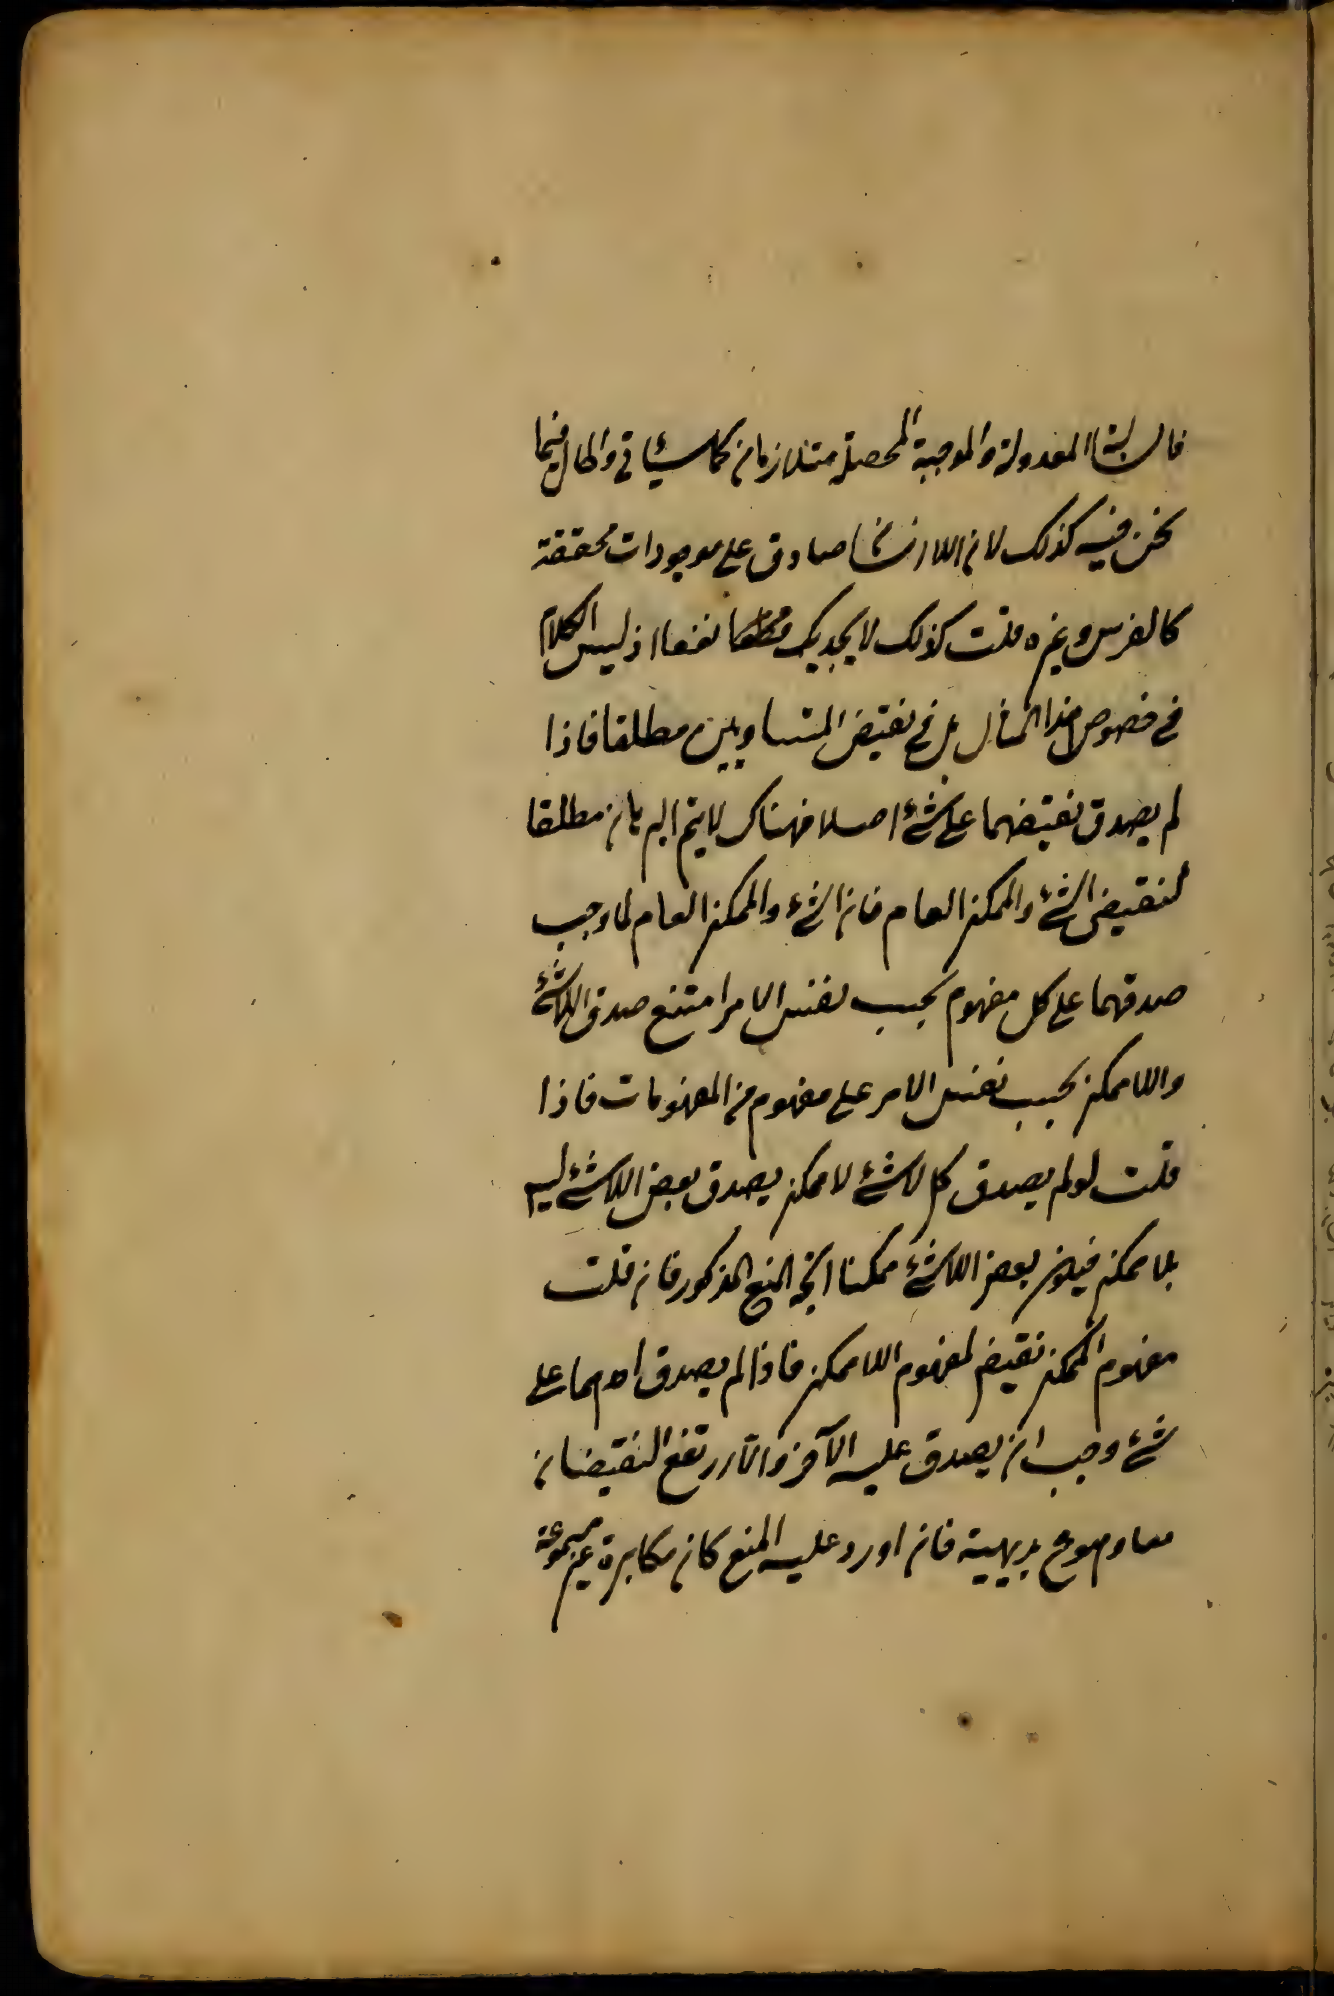 فالسالبة المعدولة والموجبة المحصلة متلازمان كما سيأتي والحال فيما
نحن فيه كذلك لان اللاانسان صادق على موجودات محققة
كالفرس وغيره قلت كذلك لا يجديك نفعا اذ ليس الكلام
في خصوص هذا المثال بل في نقيض المتساويين مطلقا فاذا
لم يصدق نقيضهما على شئ اصلا فهناك لا يتم البرهان مطلقا
كنقيض الشئ والممكن العام فان الشئ والممكن العام لما وجب
صدقهما على كل مفهوم بحسب نفس الامر امتنع صدق اللاشئ
واللاممكن بحسب نفس الامر على مفهوم من المفهومات فاذا
قلت لو لم يصدق كل لاشئ لاممكن يصدق بعض اللاشئ ليس
بلاممكن فيكون بعض اللاشئ ممكنا اتجه المنع المذكور فان قلت
مفهوم الممكن نقيض لمفهوم اللاممكن فاذا لم يصدق احدهما على
شئ وجب ان يصدق عليه الآخر والا ارتفع النقيضان
معا وهو مح بديهية فان اورد عليه المنع كان مكابرة غير مسموعة